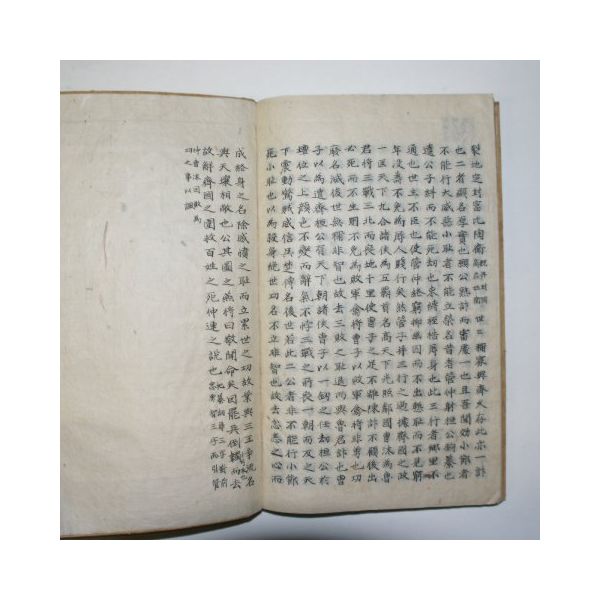 裂地定封富比陶衛魏冉封陶商君姓衛世世稱寡與齊久存此亦一計
也二者顯名厚實也願公熟計而審處一也且吾聞效小節者
不能行大威惡小耻者不能立榮名昔者管仲射桓公鉤簒也
遺公子糾而不能死㤼也束縛桎梏辱身也此三行者鄉里不
通也世主不臣也使管仲終窮抑幽囚而不出慙耻而不見窮
年沒壽不免爲辱人賤行矣然管子幷三行之過據齊國之政
一匡天下九合諸侯爲五霸首名高天下光照鄰國曹沫爲魯
君將三戰三北而喪地千里使曹子之足不離陳計不顧後出
必死而不生則不免爲敗軍禽將曹子以敗軍禽將非勇也功
廢名滅後世無稱非智也故去三敗之耻退而與魯君計也曹
子以爲遭齊桓公有天下朝諸侯曹子以一劍之任劫桓公於
壇位之上顔色不變而辭氣不悖三戰之所喪一朝而反之天
下震動驚駭威信吳楚傳名後世若此二公者非不能行小節
死小耻也以爲殺身絶世功名不立非智也故去忿恚之心而
成終身之名除感忿之耻而立累世之功故業與三王爭流名
與天壤相敝也公其圖之燕將曰敬聞命矣因罷兵倒韣而去
故解齊國之圍救百姓之死仲連之說也